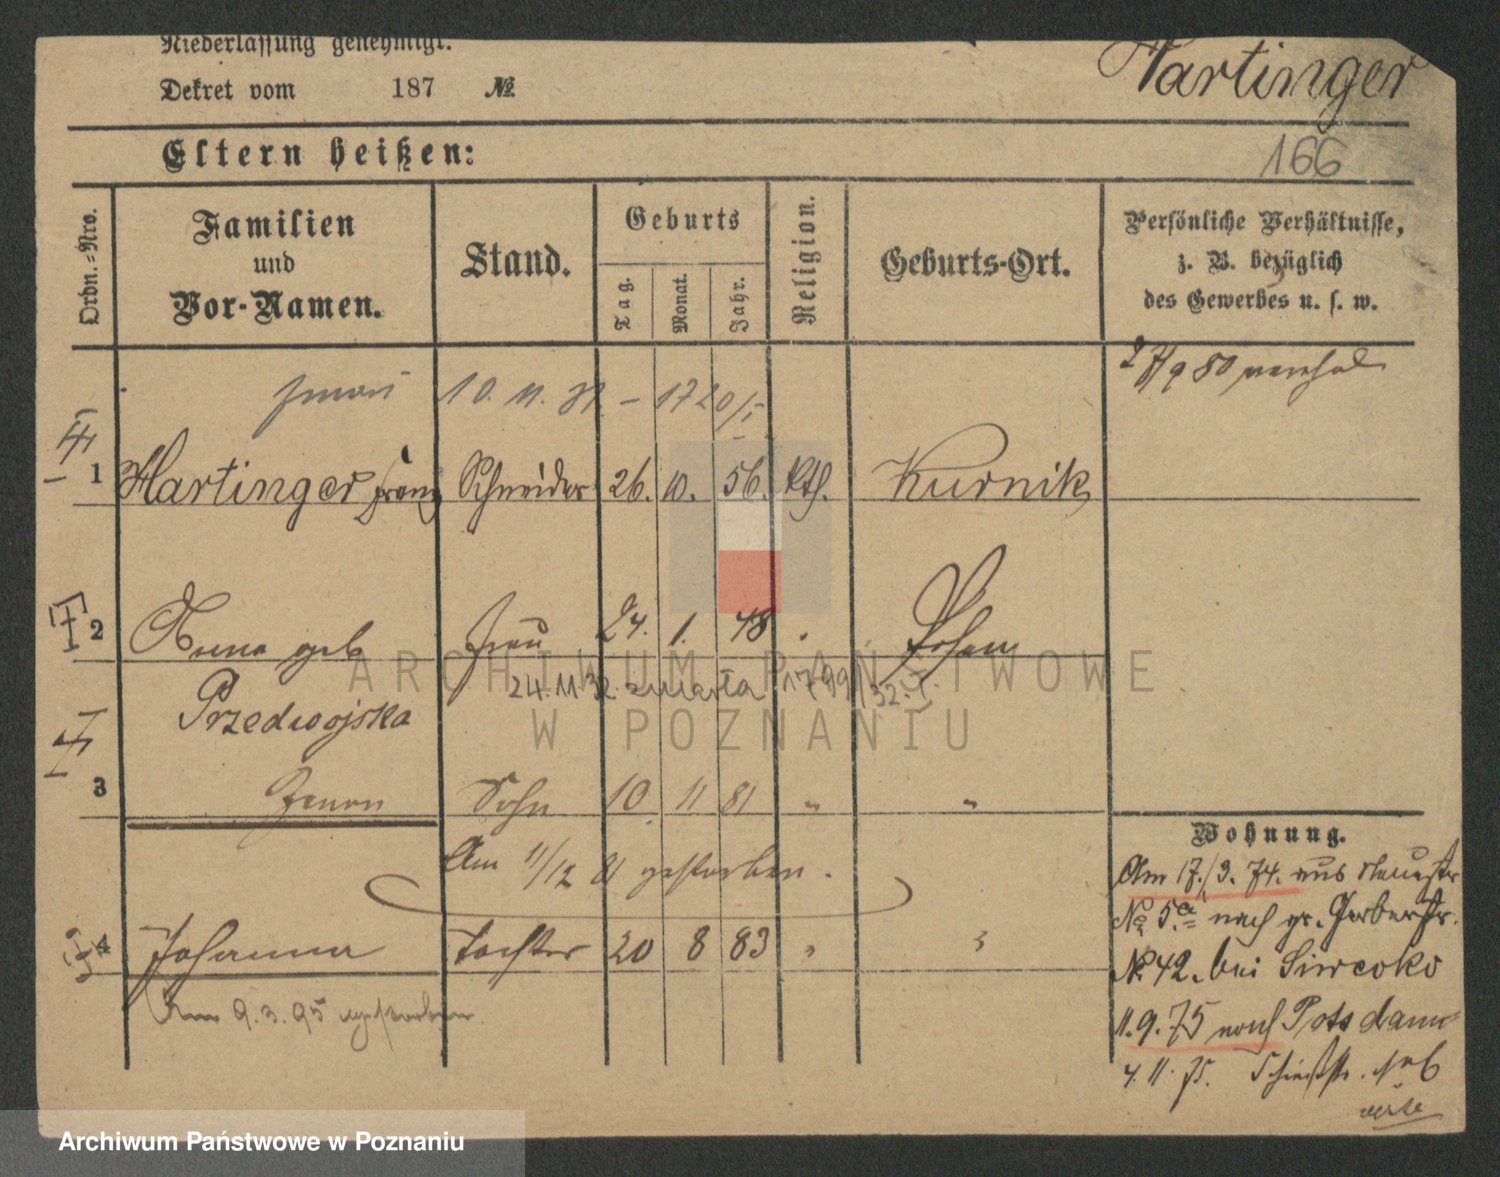 Niederlassung genehmigt.
Dekret vom 187 №
Hartinger
166
Eltern heißen:
Ordn.-Nro.
Familien
und
Vor-Namen.
Stand.
Geburts
Tag.
Monat.
Jahr.
Religion.
Geburts-Ort.
Persönliche Verhältnisse,
z. B. bezüglich
des Gewerbes u. s. w.
27/9 80
10. 11. 31. - 1720/I
1 Hartinger Franz Schneider 26. 10. 56. Kth. Kurnik
2 Anna geb Frau 24. 1. 48 Posen
24.11 32. zmarła 1799/32. I
Przedwojska
3 Zenon Sohn 10 11 81 " "
Am 11/12 81 gestorben.
4 Johanna Tochter 20 8 83 "
Am 9.3.95 gestorben.
Wohnung.
Am 17./3. 74. aus
No 5a nach gr. Gerberstr.
No 42. bei
11.9.75 nach Potsdam
4.11.75. Schießstr. No 6
verte
ARCHIWUM PAŃSTWOWE
W POZNANIU
Archiwum Państwowe w Poznaniu